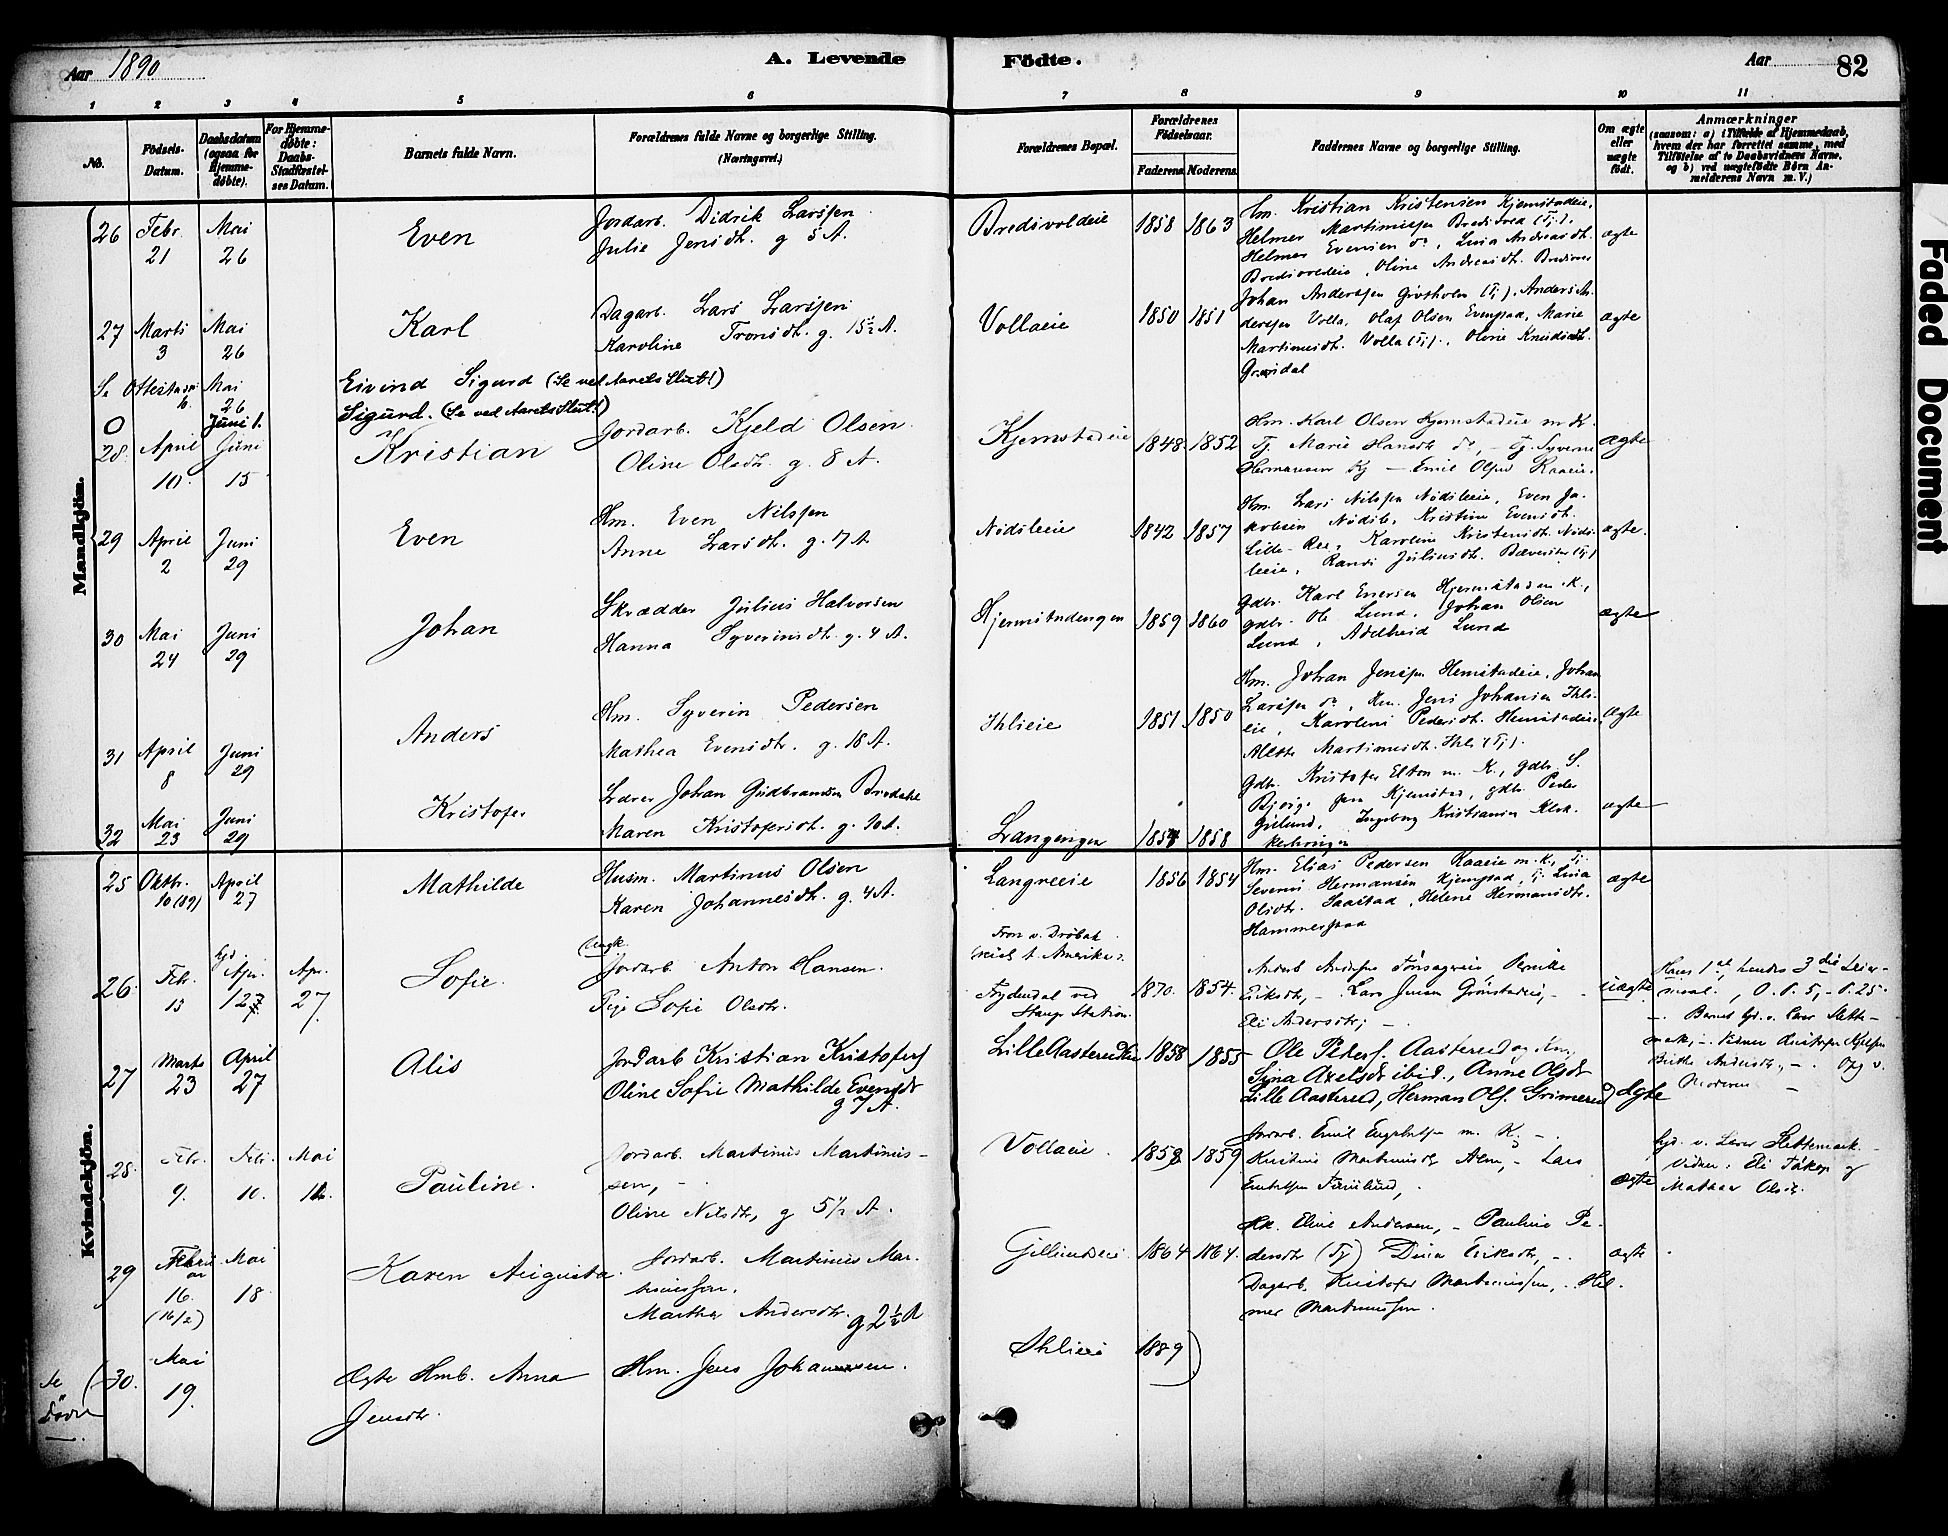 Aar 1890
A. Levende Födte.
Aar
82
1 2 3 4 5 6 7 8 9 10 11
No.
Födsels-Datum.
Daabsdatum (ogsaa for Hjemme-døbte).
For Hjemme-døbte: Daabs-Stadfæstelses Datum.
Barnets fulde Navn.
Forældrenes fulde Navne og borgerlige Stilling.
(Næringsvei.)
Forældrenes Bopæl.
Forældrenes Fødselsaar.
Faderens Moderens
Faddernes Navne og borgerlige Stilling.
Om ægte eller uægte født.
Anmærkninger
(saasom: a) i Tilfælde af Hjemmedaab, hvem der har forrettet samme, med Tilføielse af to Daabsvidners Navne, og b) ved uægtefødte Børn Anmelderens Navn m. V.)
Mandkjön.
26 Febr. 21 Mai 26 Even
Jordarb. Didrik Larssen
Julie Jensdtr. g 5 A.
Bredsvoldeie 1858 1863
Hm. Kristian Kristensen Kjemstadeie,
Helmer Martinissen
Helmer Evensen do, Lina Andreasdtr.
Oline Andreasdtr.
ægte
27 Marts 3 Mai 26 Karl
Dagarb. Lars Larssen
Karoline Tronsdtr. g. 15½ A.
Vollaeie 1850 1851
Johan Anderssen (Tj.), Anders An-
derssen Volla, Olaf Olsen Evenstad, Marie
Martinusdtr. Volla (Tj.), Oline Knudsdtr.
ægte
Mai 26 Eivind Sigurd (Se ved Aarets Slut!)
Juni 1. Sigurd. (Se ved Aarets Slut!)
28 April 10. Juni 15 Kristian
Jordarb. Kjeld Olsen
Oline Olsdtr. g. 8 A.
Kjemstadeie 1848 1852
Hm. Karl Olsen Kjemstadeie m K.
Tj. Marie Hansdtr do, – Tj. Syverine
Hermansen Tj – Emil Olsen Raaeie.
ægte
29 April 2 Juni 29 Even
Hm. Even Nilssen
Anne Larsdtr. g. 7 A
Nodsleeie 1842 1857
Hm. Lars Nilssen Nodsleeie, Even Ja-
kobsen Kristine Evensdtr.
Lille-Ree, Karoline Kristensdtr. Nods-
leeie, Randi Juliusdtr. (Tj)
ægte.
30 Mai 24 Juni 29 Johan
Skrædder Julius Halvorsen
Hanna Syverinsdtr. g. 4 A.
Hjemstadengen 1859 1860
Gdbr. Karl Enersen Hjermstaden K.,
gdbr. Ole Lund, Johan Olsen
Lund, Adelheid Lund
ægte
31 April 8 Juni 29 Anders
Hm. Syverin Pedersen
Mathea Evensdtr. g. 18 A.
Ihlieie 1851 1850
Hm. Johan Jenssen Hemstadeie, Johan
Larssen do, Hm. Jens Johansen Ihli-
eie, Karoline Pedersdtr. Hemstadeie,
Martinusdtr. Ihli (Tj).
ægte
32 Mai 23 Juni 29 Kristofer
Lærer Johan Gudbrandsen Bredahl
Maren Kristofersdtr. g. 10 A.
Langengen 1854 1858
Gdbr. Kristofer Elton m. K., gdbr. S.
Kjemstad, gdbr. Peder
Grilund, Ingeborg Kristiansen
ægte
Kvindekjön.
25 Oktbr. 10 (89) April 27 Mathilde
Husm. Martinus Olsen
Karen Johannesdtr. g. 4 A.
Langreeie 1856 1854
Hm. Elias Pedersen Raaeie m. K., Tj.
Severin Hermansen Kjemstad, Tj. Lina
Olsdtr. Saastad, Helene Hermansdtr.
Hammerstad
ægte
26 Febr. 13 Apr. 12 Apr. 27 Sofie.
Ungk. Jordarb. Anton Hansen.
Pige Sofie Olsdtr.
Fron v. Drøbak
(reist t. Amerika).
Frydendal ved
Stange Station.
1870. 1854.
Eriksdtr, – Lars Jensen Grønstadeie, –
Eli Andersdtr; –
uægte
Hans 1ste, hendes 3die Leier-
maal.
27 Marts 23 April 27 Alis
Jordarb Kristian Kristofers
Oline Sofie Mathilde Evensdt
g 7 A.
Lille Aastereddeie 1858 1855
Ole Peders. Aastered og Kn;
Sina Axelsdt ibid., Anne Olsdt
Lille Aastered, Herman Ols. Grimerud
ægte
28. Febr. 9. Febr. 10. Mai 11. Pauline.
Jordarb. Martinus Martinus-
sen, –
Oline Nilsdtr, g 5½ A.
Vollaeie. 1858 1859
Jordarb. Emil Engebretsen m. K. –
Kristine Martinusdtr Alm, – Lars
ægte
hjd. v. Lærer Slettemark
Vidner: Eli og
Mathea Olsdtr.
29 Februar 16. (16/2) Mai 18 Karen Augusta.
Jordarb. Martinus Mar-
tinussen.
Martha Andersdtr. g 2½ A
Gillundeie 1864 1864.
Eline Andersen, – Pauline Pe-
dersdtr (Tj) Dina Eriksdtr, –
Dagarb. Kristofer Martinussen, Hel-
mer Martinussen.
ægte
se Døde
30. Mai 19. Ægte Hmb. Anna
Jensdtr.
Hm. Jens Johannessen.
Ihlieie 1889
Faded Document